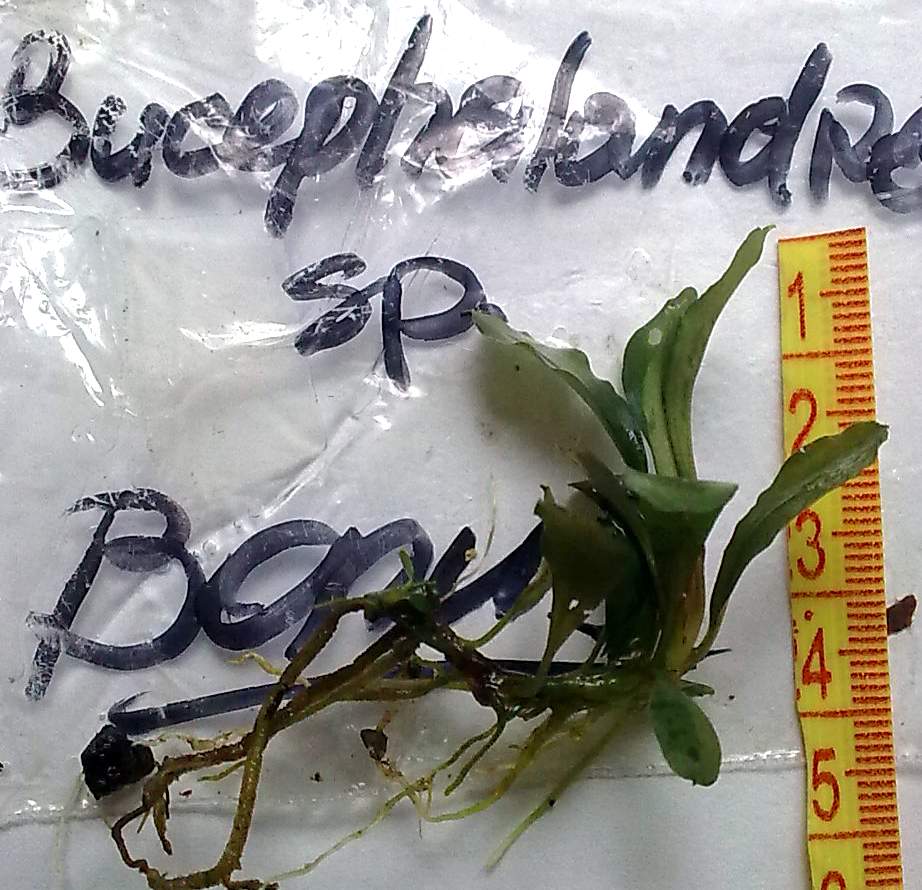 Bucephalandra
sp.
1
2
3
4
5